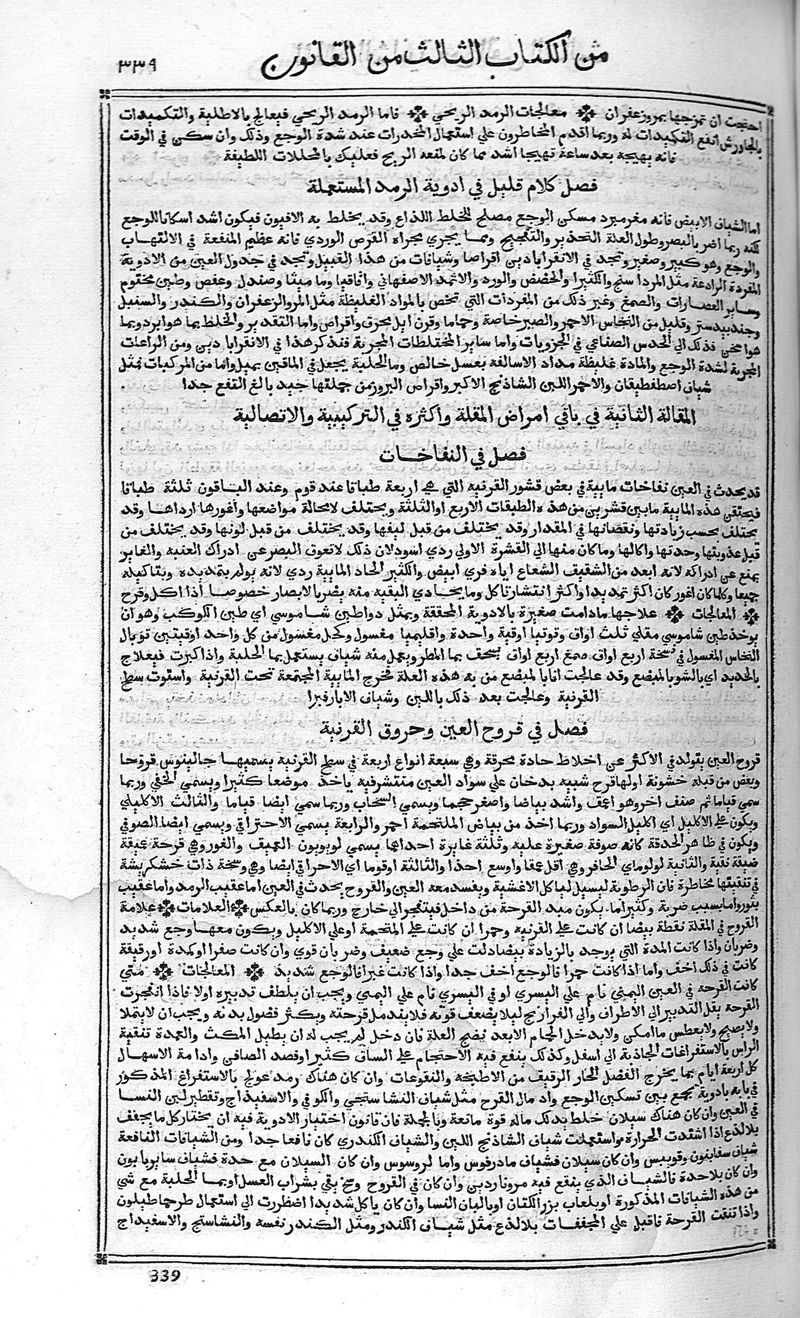 من الكتاب الثالث من القانون ٣٣٩
احتجت ان تمزجها بمر وزعفران معالجات الرمد الريحي فاما الرمد الريحي فيعالج بالاطلية والتكميدات
بالجاورش انفع التكميدات له وربما اقدم المخاطرون علي استعمال المخدرات عند شدة الوجع وذلك وان سكن في الوقت
فانه يهيجه بعد ساعة تهيجا اشد مما كان لمنعه الريح فعليك بالمحللات اللطيفة
فصل كلام قليل في ادوية الرمد المستعملة
اما الشياف الابيض فانه مغر مبرد مسكن الوجع مصلح للخلط اللذاع وقد يخلط به الافيون فيكون اشد اسكانا للوجع
لكنه ربما اضر بالبصر وطول العلة التخدير والتفجيج ومما يجري مجراه القرص الوردي فانه عظيم المنفعة في الالتهاب
والوجع وهو كبير وصغير وتجد في الاقراباذين اقراصا وشيافات من هذا القبيل وتجد في جدول العين من الادوية
المفردة الرادعة مثل المرداسنج والكثيرا والحضض والورد والاثمد الاصفهاني واقاقيا وماميثا وصندل وعفص وطين مختوم
وساير العصارات والصمغ وغير ذلك من المفردات التي تختص بالمواد الغليظة مثل المر والزعفران والكندر والسنبل
وجندبيدستر وقليل من النحاس الاحمر والصبر خاصة وحماما وقرن ايل محرق واقراص واما التقدير والخلط بما هو ابرد وبما
هو اسخن فذلك الي الحدس الصناعي في الجزويات واما ساير المختلطات المجربة فنذكر هذا في الاقراباذين ومن الرادعات
المجربة لشدة الوجع والمادة غليظة مداد الاساكفة بعسل خالص وما الحلبة يجعل في الماقين بميل واما من المركبات فمثل
شياف اصطفطيقان والاحمر اللين الشاذنج الاكبر واقراص البزور من جملتها جيد بالغ النفع جدا
المقالة الثانية في باقي امراض المقلة واكثره في التركيبية والاتصالية
فصل في النفاخات
قد يحدث في العين نفاخات مايية في بعض قشور القرنية التي هي اربعة طباقا عند قوم وعند الباقون ثلثة طباقا
فيحتقن هذه المايية مابين قشرين من هذه الطبقات الاربع او الثلثة ويختلف لا محالة مواضعها واغورها ارداها وقد
يختلف بحسب زيادتها ونقصانها في المقدار وقد يختلف من قبل كيفها وقد يختلف من قبل لونها وقد يختلف من
قبل عذوبتها وحدتها واكالها وما كان منها الي القشرة الاولي ردي اسود لان ذلك لا تعوق البصر عن ادراك العنبة والغاير
يمنع عن ادراكه لانه ابعد من الشفيف الشعاع اياه فري ابيض والكثير الحاد المايية ردي لانه يولم بتمديده وبتاكيله
جميعا وكلما كان اغور كان اكثر تمديدا واكثر انتشارا تاكل وما يحادي الثقبه منه يضر بالابصار خصوصا اذا اكل وقرح
المعالجات علاجها ما دامت صغيرة بالادوية المجففة وبمثل دوا طين شاموسي اي طين الكوكب وهو ان
يوخذ طين شاموسي مقلي ثلث اواق وتوتيا اوقية واحدة واقليميا مغسول وكحل مغسول من كل واحد اوقيتين توبال
النحاس المغسول في نسخة اربع اواق صمغ اربع اواق يسحق بما المطر ويعمل منه شياف يستعمل بما الحلبة واذا كبرت فيعالج
بالحديد اي بالشق بالمبضع وقد عالجت انا بالمبضع من به هذه العلة فخرج المايية المجتمعة تحت القرنية واستوت سطح
القرنية وعالجت بعد ذلك باللبن وشياف الابار فبرا
فصل في قروح العين وخروق القرنية
قروح العين يتولد في الاكثر عن اخلاط حادة محرقة وهي سبعة انواع اربعة في سطح القرنية يسميها جالينوس قروحا
وبعض من قبله خشونة اولها قرح شبيه بدخان علي سواد العين منتشر فيه ياخذ موضعا كثيرا ويسمي الخفي وربما
سمي قياما ثم صنف اخر وهو اعمق واشد بياضا واصغر حجما ويسمي السحاب وربما سمي ايضا قياما والثالث الاكليلي
ويكون علي الاكليل اي اكليل السواد وربما اخذ من بياض الملتحمة احمر والرابعة يسمي الاحتراقي ويسمي ايضا الصوفي
ويكون في ظاهر الحدقة كانه صوفة صغيرة عليه وثلثة غايرة احداها يسمي لوبويون العميق والغور وهي قرحة عميقة
ضيقة نقية والثانية لولوماي الحافر وهي اقل عمقا واوسع اخذا والثالثة اوقوما اي الاحتراقي ايضا وهي وسخة ذات خشكريشة
في تنقيتها مخاطرة فان الرطوبة ليسيل لتاكل الاغشية ويفسد معه العين والقروح يحدث في العين اما عقيب الرمد واما عقيب
بثور واما بسبب ضربة وكثيرا ما يكون مبدء القرحة من داخل فينفجر الي خارج وربما كان بالعكس العلامات علامة
القروح في المقلة نقطة بيضا ان كانت علي القرنية وحمرا ان كانت علي الملتحمة او علي الاكليل ويكون معها وجع شديد
وضربان واذا كانت المدة التي يوجد بالزيادة بيضا دلت علي وجع ضعيف وضربان قوي وان كانت صفرا او كمدة او رقيقة
كانت في ذلك اخف واما اذا كانت حمرا فالوجع اخف جدا واذا كانت غبرا فالوجع شديد المعالجات متي
كانت القرحة في العين اليمني نام علي اليسري او في اليسري نام علي اليمني ويجب ان يلطف تدبيره اولا فاذا انفجرت
القرحة نقل التدبير الي الاطراف والي الفراريج ليلا يضعف قوته فلا يندمل قرحته ويكثر فضول بدنه ويجب ان لا يمتلا
ولا يصيح ولا يعطس ما امكن ولا يدخل الحمام الا بعد نضج العلة فان دخل لم يجب له ان يطيل المكث والعمدة تنقية
الراس بالاستفراغات الجاذبة الي اسفل وكذلك ينفع فيه الاحتجام علي الساق كثيرا وفصد الصافن وادامة الاسهال
كل اربعة ايام بما يخرج الفضل الحار الرقيق من الاطبخة والنقوعات وان كان هناك رمد عولج بالاستفراغ المذكور
في بابه بادوية تجمع بين تسكين الوجع وادمال القرح مثل شياف النشاستجي والكوفي والاسفيداج وتقطير لبن النسا
في العين وان كان هناك سيلان خلط بذلك ماله قوة مانعة وبالجملة فان قانون اختيار الادوية فيه ان يختار كل ما يجفف
بلا لذع اذا اشتدت الحرارة واستعملت شياف الشاذنج اللين والشياف الكندري كان نافعا جدا ومن الشيافات النافعة
شياف سفانيون وقوبيس وان كان سيلان فشياف مادرفوس واما لروسوس وان كان السيلان مع حدة فشياف ساير بابون
وان كان بلا حدة فالشياف الذي ينفع فيه مر وناردين وان كان في القروح وسخ نقي بشراب العسل او بما الحلبة مع شي
من هذه الشيافات المذكورة او بلعاب بزر الكتان او بالبان النسا وان كان ياكل شديدا اضطررت الي استعمال طرحماطيلون
واذا تنقت القرحة فاقبل علي المجففات بلا لذع مثل شياف الكندر ومثل الكندر نفسه والنشاستج والاسفيداج
339